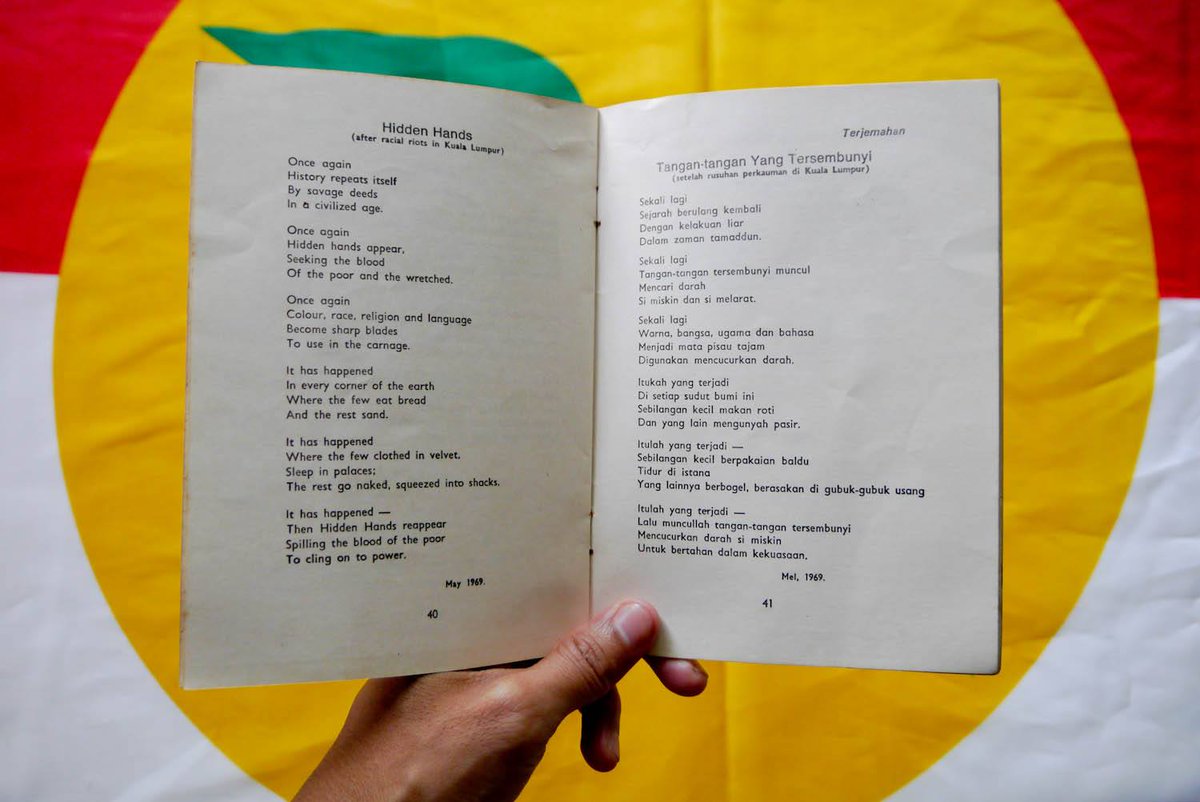 Hidden Hands
(after racial riots in Kuala Lumpur)
Once again
History repeats itself
By savage deeds
In a civilized age.
Once again
Hidden hands appear,
Seeking the blood
Of the poor and the wretched.
Once again
Colour, race, religion and language
Become sharp blades
To use in the carnage.
It has happened
In every corner of the earth
Where the few eat bread
And the rest sand.
It has happened
Where the few clothed in velvet,
Sleep in palaces;
The rest go naked, squeezed into shacks.
It has happened —
Then Hidden Hands reappear
Spilling the blood of the poor
To cling on to power.
May 1969.
40
Terjemahan
Tangan-tangan Yang Tersembunyi
(setelah rusuhan perkauman di Kuala Lumpur)
Sekali lagi
Sejarah berulang kembali
Dengan kelakuan liar
Dalam zaman tamaddun.
Sekali lagi
Tangan-tangan tersembunyi muncul
Mencari darah
Si miskin dan si melarat.
Sekali lagi
Warna, bangsa, ugama dan bahasa
Menjadi mata pisau tajam
Digunakan mencucurkan darah.
Itukah yang terjadi
Di setiap sudut bumi ini
Sebilangan kecil makan roti
Dan yang lain mengunyah pasir.
Itulah yang terjadi —
Sebilangan kecil berpakaian baldu
Tidur di istana
Yang lainnya berbogel, berasakan di gubuk-gubuk usang
Itulah yang terjadi —
Lalu muncullah tangan-tangan tersembunyi
Mencucurkan darah si miskin
Untuk bertahan dalam kekuasaan.
Mei, 1969.
41